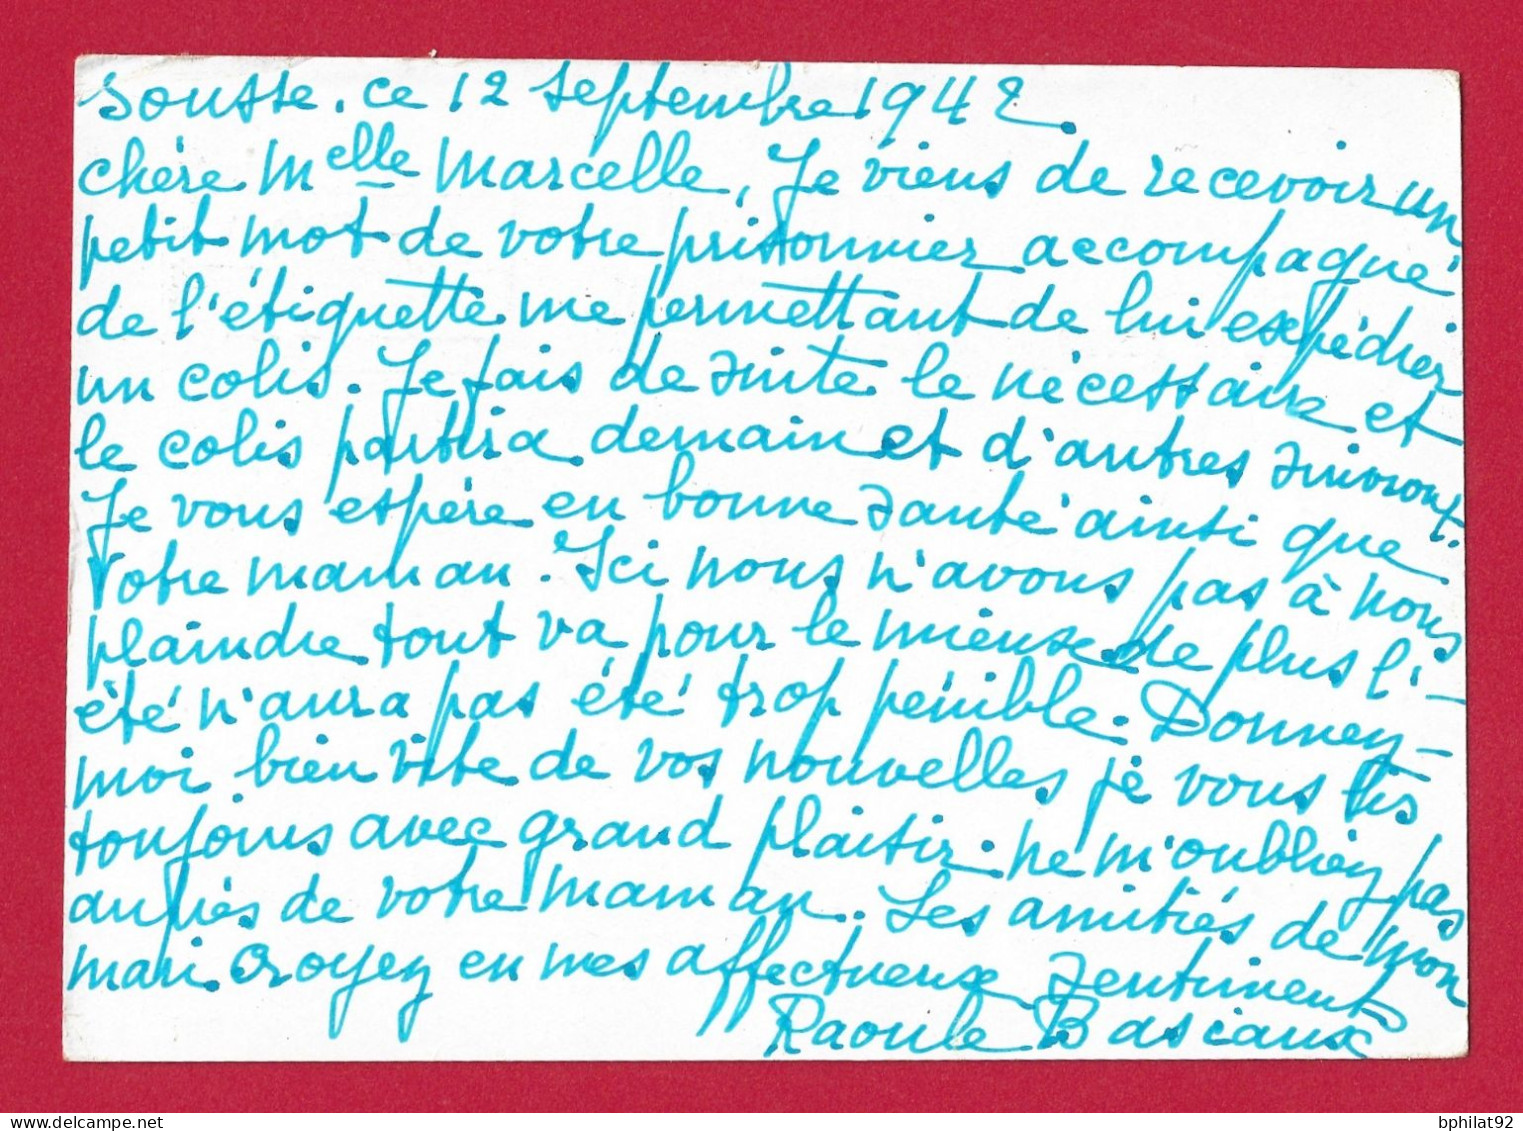 Sousse. ce 12 Septembre 1942.
Chère Melle Marcelle, Je viens de recevoir un
petit mot de votre prisonnier accompagné
de l'étiquette me permettant de lui expédier
un colis. Je fais de suite le nécessaire et
le colis partira demain et d'autres suivront.
Je vous espère en bonne santé ainsi que
votre maman. Ici nous n'avons pas à nous
plaindre tout va pour le mieux de plus l'-
été n'aura pas été trop pénible. Donnez-
moi bien vite de vos nouvelles je vous lis
toujours avec grand plaisir. ne m'oubliez pas
auprès de votre maman. Les amitiés de mon
mari. Croyez en mes affectueux sentiments
Raoule Bascaux
bphilat92